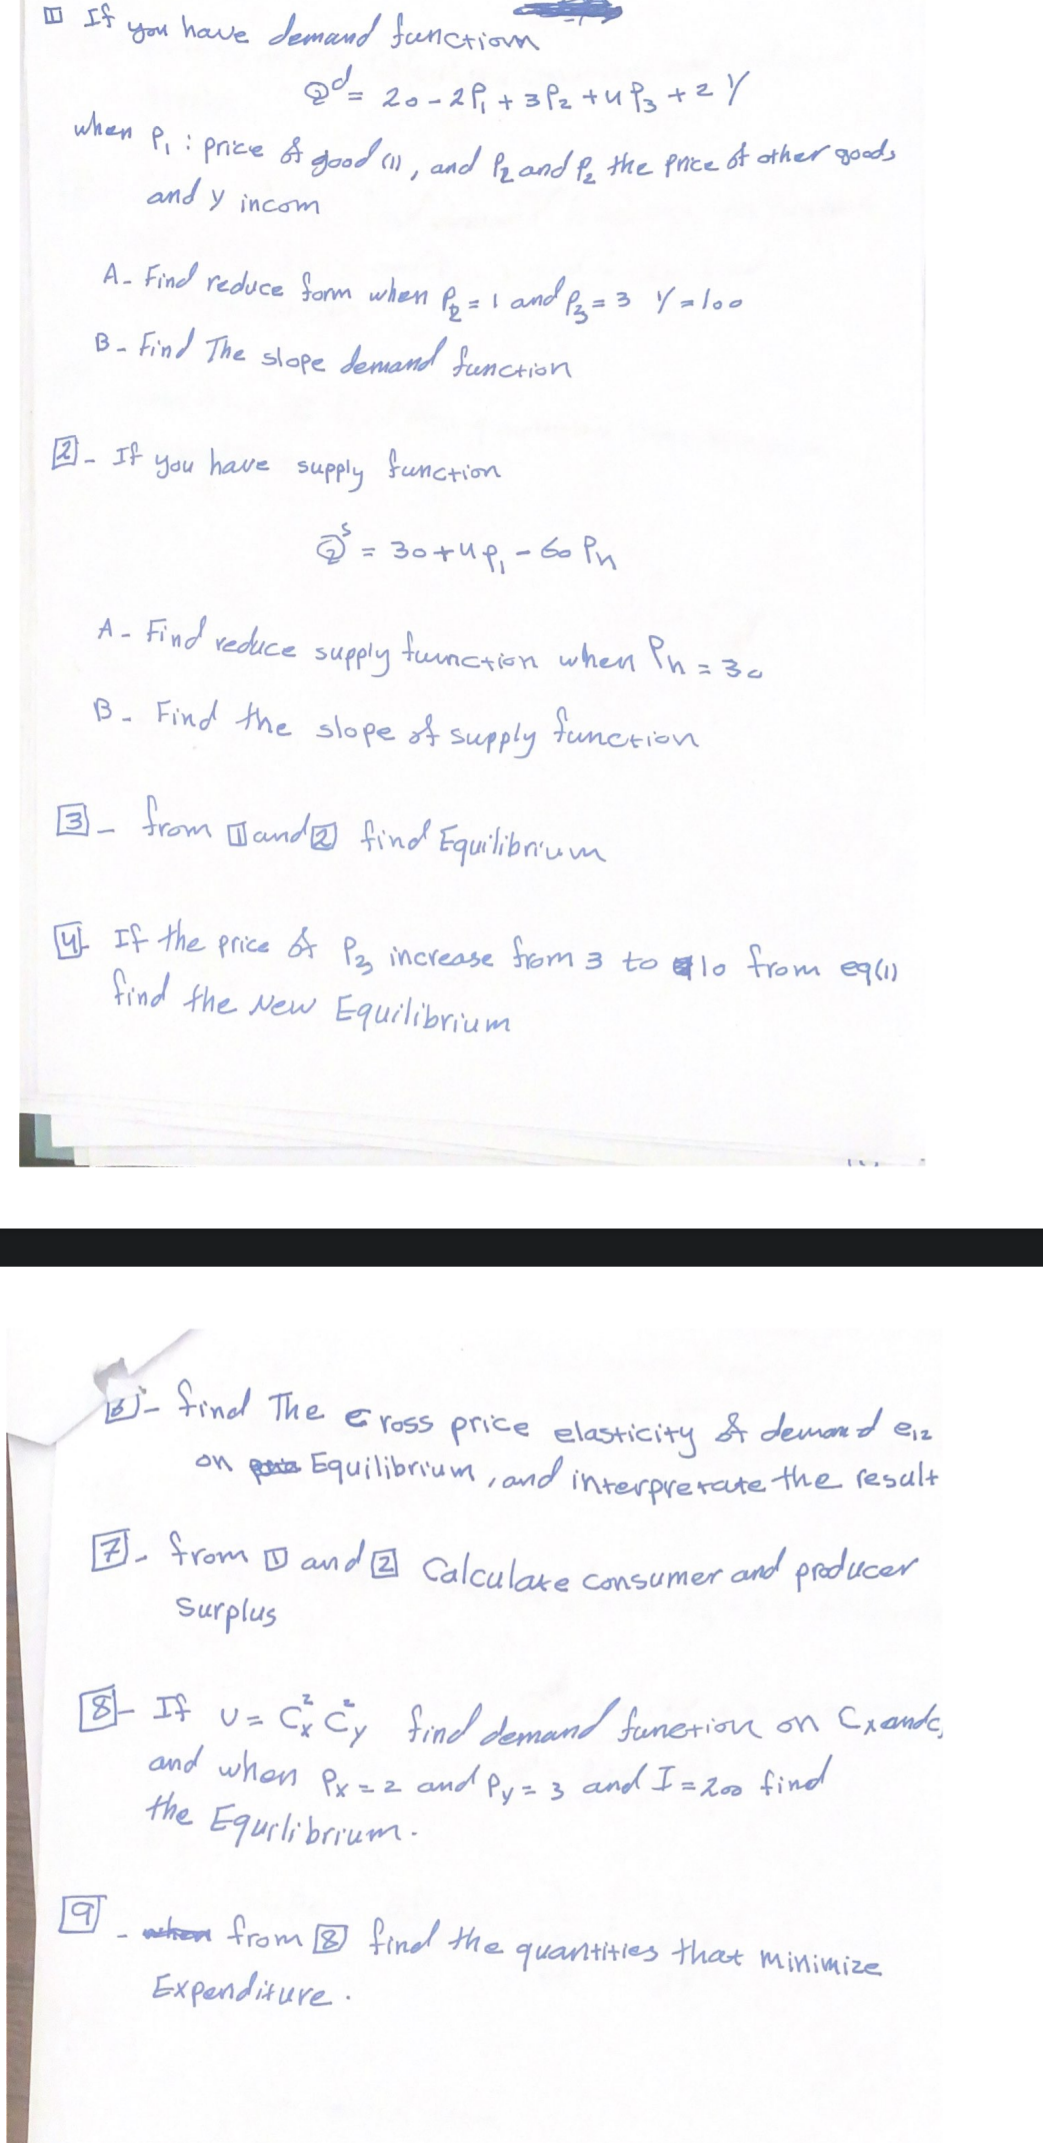 [1] If you have demand function
Qd = 20 - 2P1 + 3P2 + 4P3 + 2Y
when P1 : price of good (1), and P2 and P2 the price of other goods
and y incom
A- Find reduce form when P2 = 1 and P3 = 3 Y = 100
B- Find The slope demand function
[2]- If you have supply function
Qs = 30 + 4P1 - 60 Pn
A- Find reduce supply function when Pn = 30
B- Find the slope of supply function
[3]- from [1] and [2] find Equilibrium
[4]- If the price of P3 increase from 3 to 10 from eq(1)
find the New Equilibrium
[6]- find The cross price elasticity of demand e12
on Equilibrium, and interpretate the result
[7]- from [1] and [2] Calculate consumer and producer
surplus
[8]- If U = Cx² Cy² find demand function on Cx and C
and when Px = 2 and Py = 3 and I = 200 find
the Equilibrium.
[9] - when from [8] find the quantities that minimize
Expenditure.